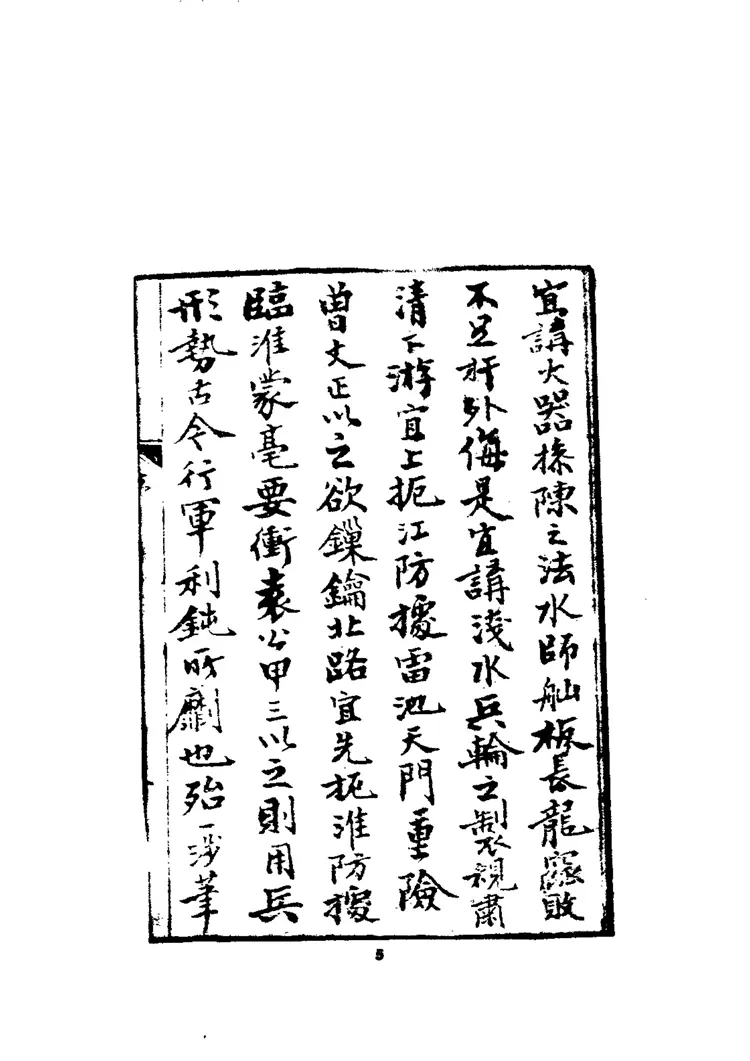 宜講火器操陳之法水師舢板長龍窳敗
不足扞外侮是宜講淺水兵輪之製不規肅
清下游宜上扼江防擾雷池天門重險
曾文正以之欲鏁鑰北路宜先扼淮防擾
臨淮蒙亳要衝袁公甲三以之則用兵
形勢古今行軍利鈍所劘也殆一涉筆
5